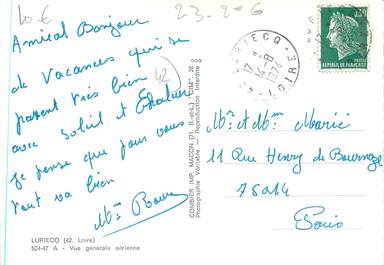 10 €
23-2-6
Amical Bonjour
de Vacances qui se
passent très bien
avec soleil et Chaleur
Je pense que pour vous
tout va bien
Mme
42
LURIECQ (42. Loire)
524-47 A - Vue générale aérienne
COMBIER IMP. MACON (71. S.-et-L.) "CIM"
Photographie Véritable - Reproduction Interdite
LURIECQ - LOIRE
17 H
-8
1974
REPUBLIQUE FRANCAISE
Mr et Mme
11 Rue Henry de
75014
Paris